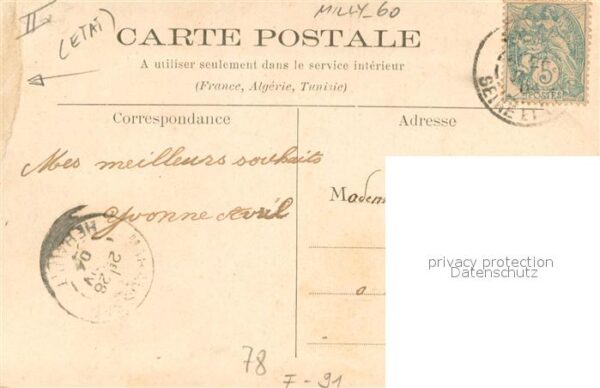 II
MILLY_60
(ETAT)
CARTE POSTALE
A utiliser seulement dans le service intérieur
(France, Algérie, Tunisie)
5
POSTES
SEINE ET
Correspondance
Adresse
Mes meilleurs souhaits
Yvonne Avril
Madem
a
privacy protection
Datenschutz
HERAULT
28
04
78
F-91